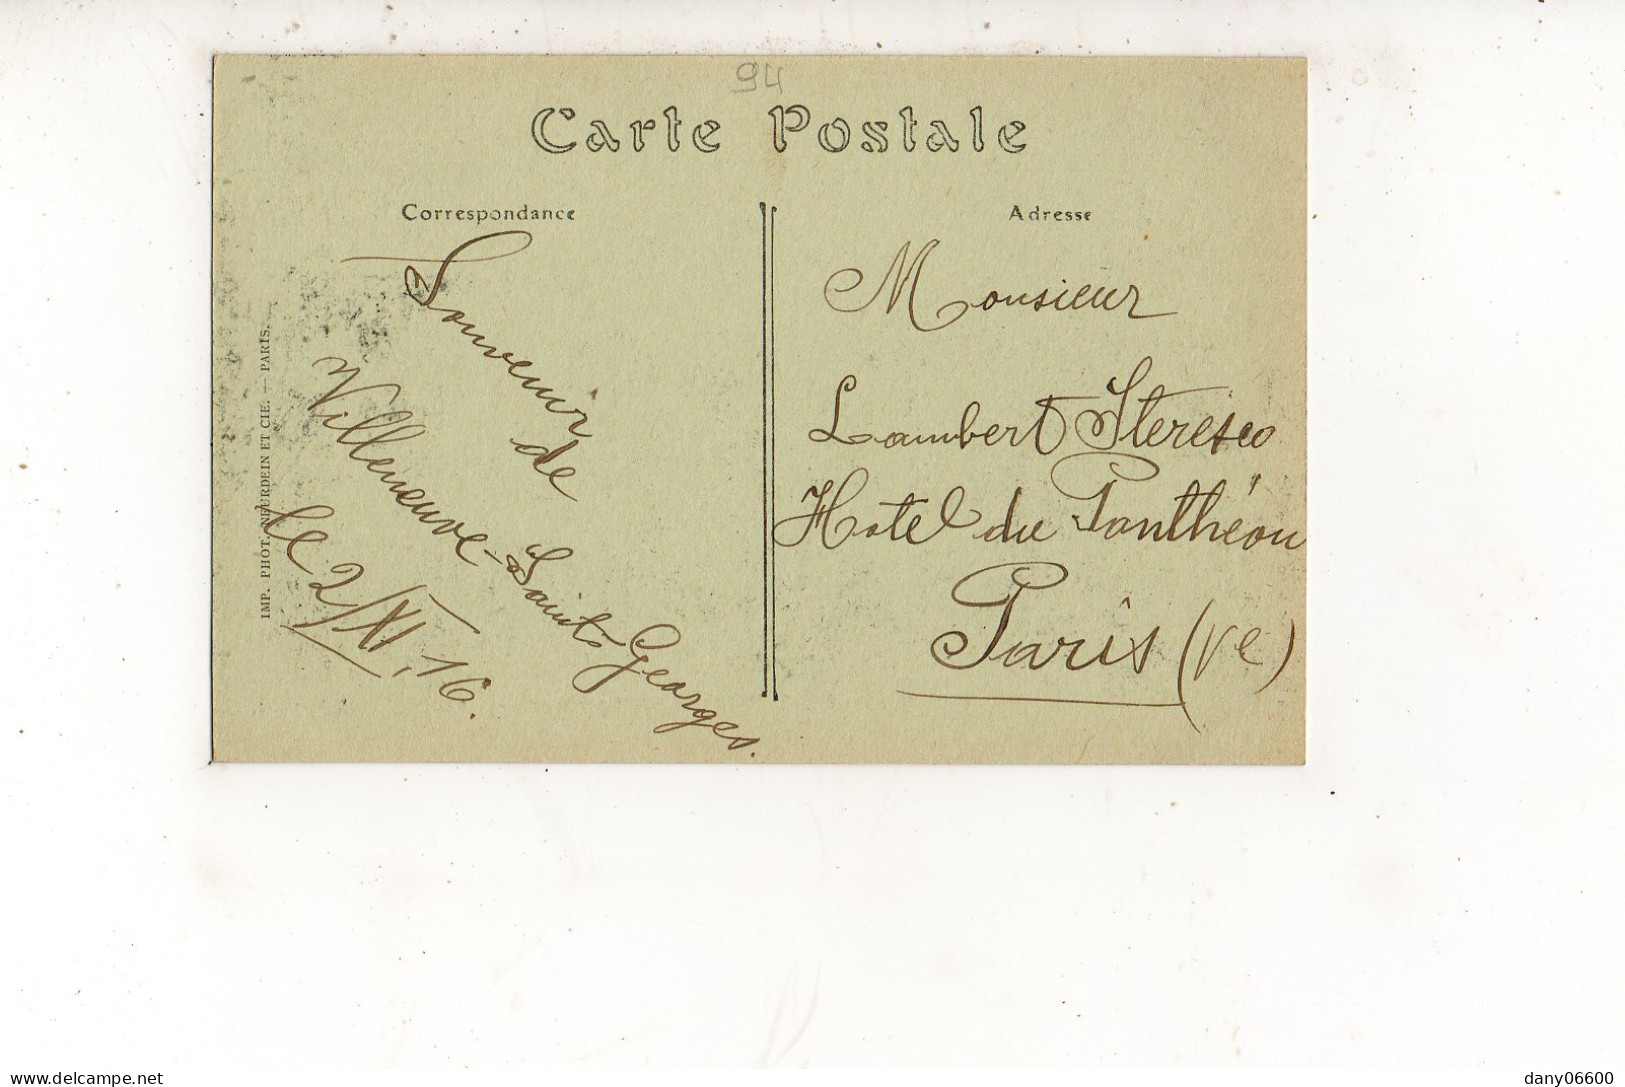 94
Carte Postale
Correspondance
Souvenir
de
Villeneuve-Saint-Georges.
le 2/XI.16.
IMP. PHOT. NEURDEIN ET CIE. — PARIS.
Adresse
Monsieur
Lambert
Hotel du Panthéon
Paris (Ve)
delcampe.net
dany06600